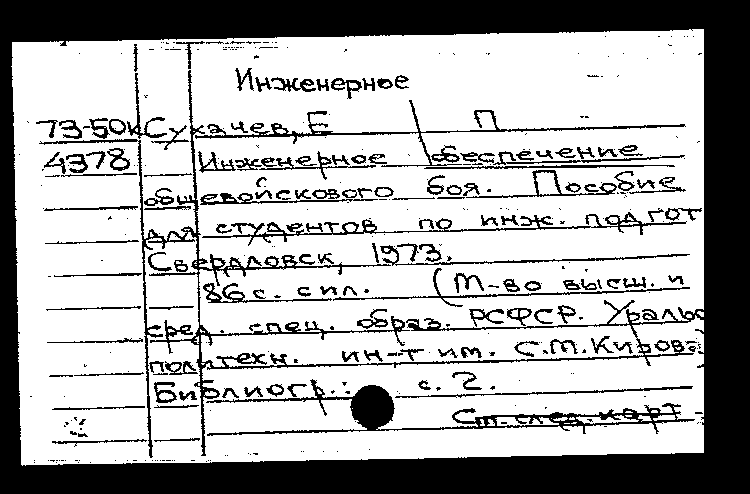 Инженерное
73-50к Сухачев, Е П
4378 Инженерное обеспечение
общевойскового боя. Пособие
для студентов по инж. подгот
Свердловск, 1973.
86 с. с ил. (М-во высш. и
сред. спец. образ. РСФСР. Уральс
политехн. ин-т им. С.М.Кирова
Библиогр.: с. 2.
См. след. карт